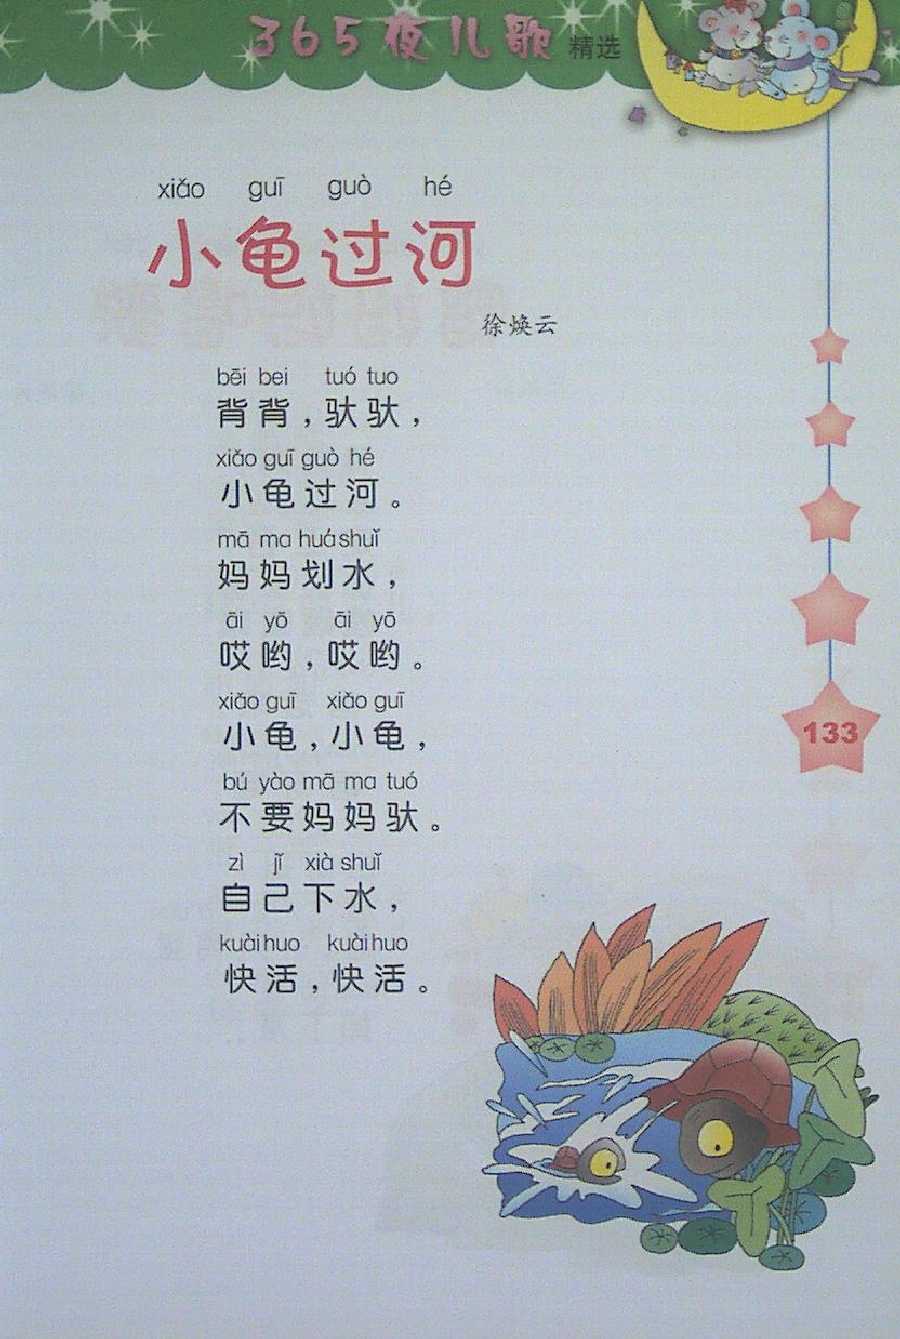 365夜儿歌 精选
xiǎo guī guò hé
小龟过河
徐焕云
bēi bei tuó tuo
背背，驮驮，
xiǎo guī guò hé
小龟过河。
mā ma huá shuǐ
妈妈划水，
āi yō āi yō
哎哟，哎哟。
xiǎo guī xiǎo guī
小龟，小龟，
bú yào mā ma tuó
不要妈妈驮。
zì jǐ xià shuǐ
自己下水，
kuài huo kuài huo
快活，快活。
133